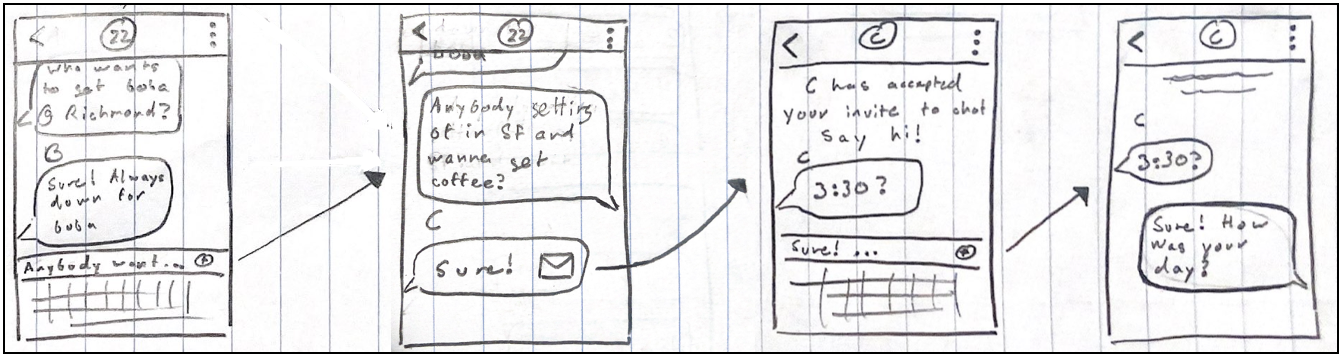 22
who wants
to get boba
@ Richmond?
B
Sure! Always
down for
boba
Anybody want...
22
boba
Anybody getting
of in SF and
wanna get
coffee?
C
Sure!
C
C has accepted
your invite to chat
Say hi!
C
3:30?
Sure! ...
C
C
3:30?
Sure! How
was your
day?